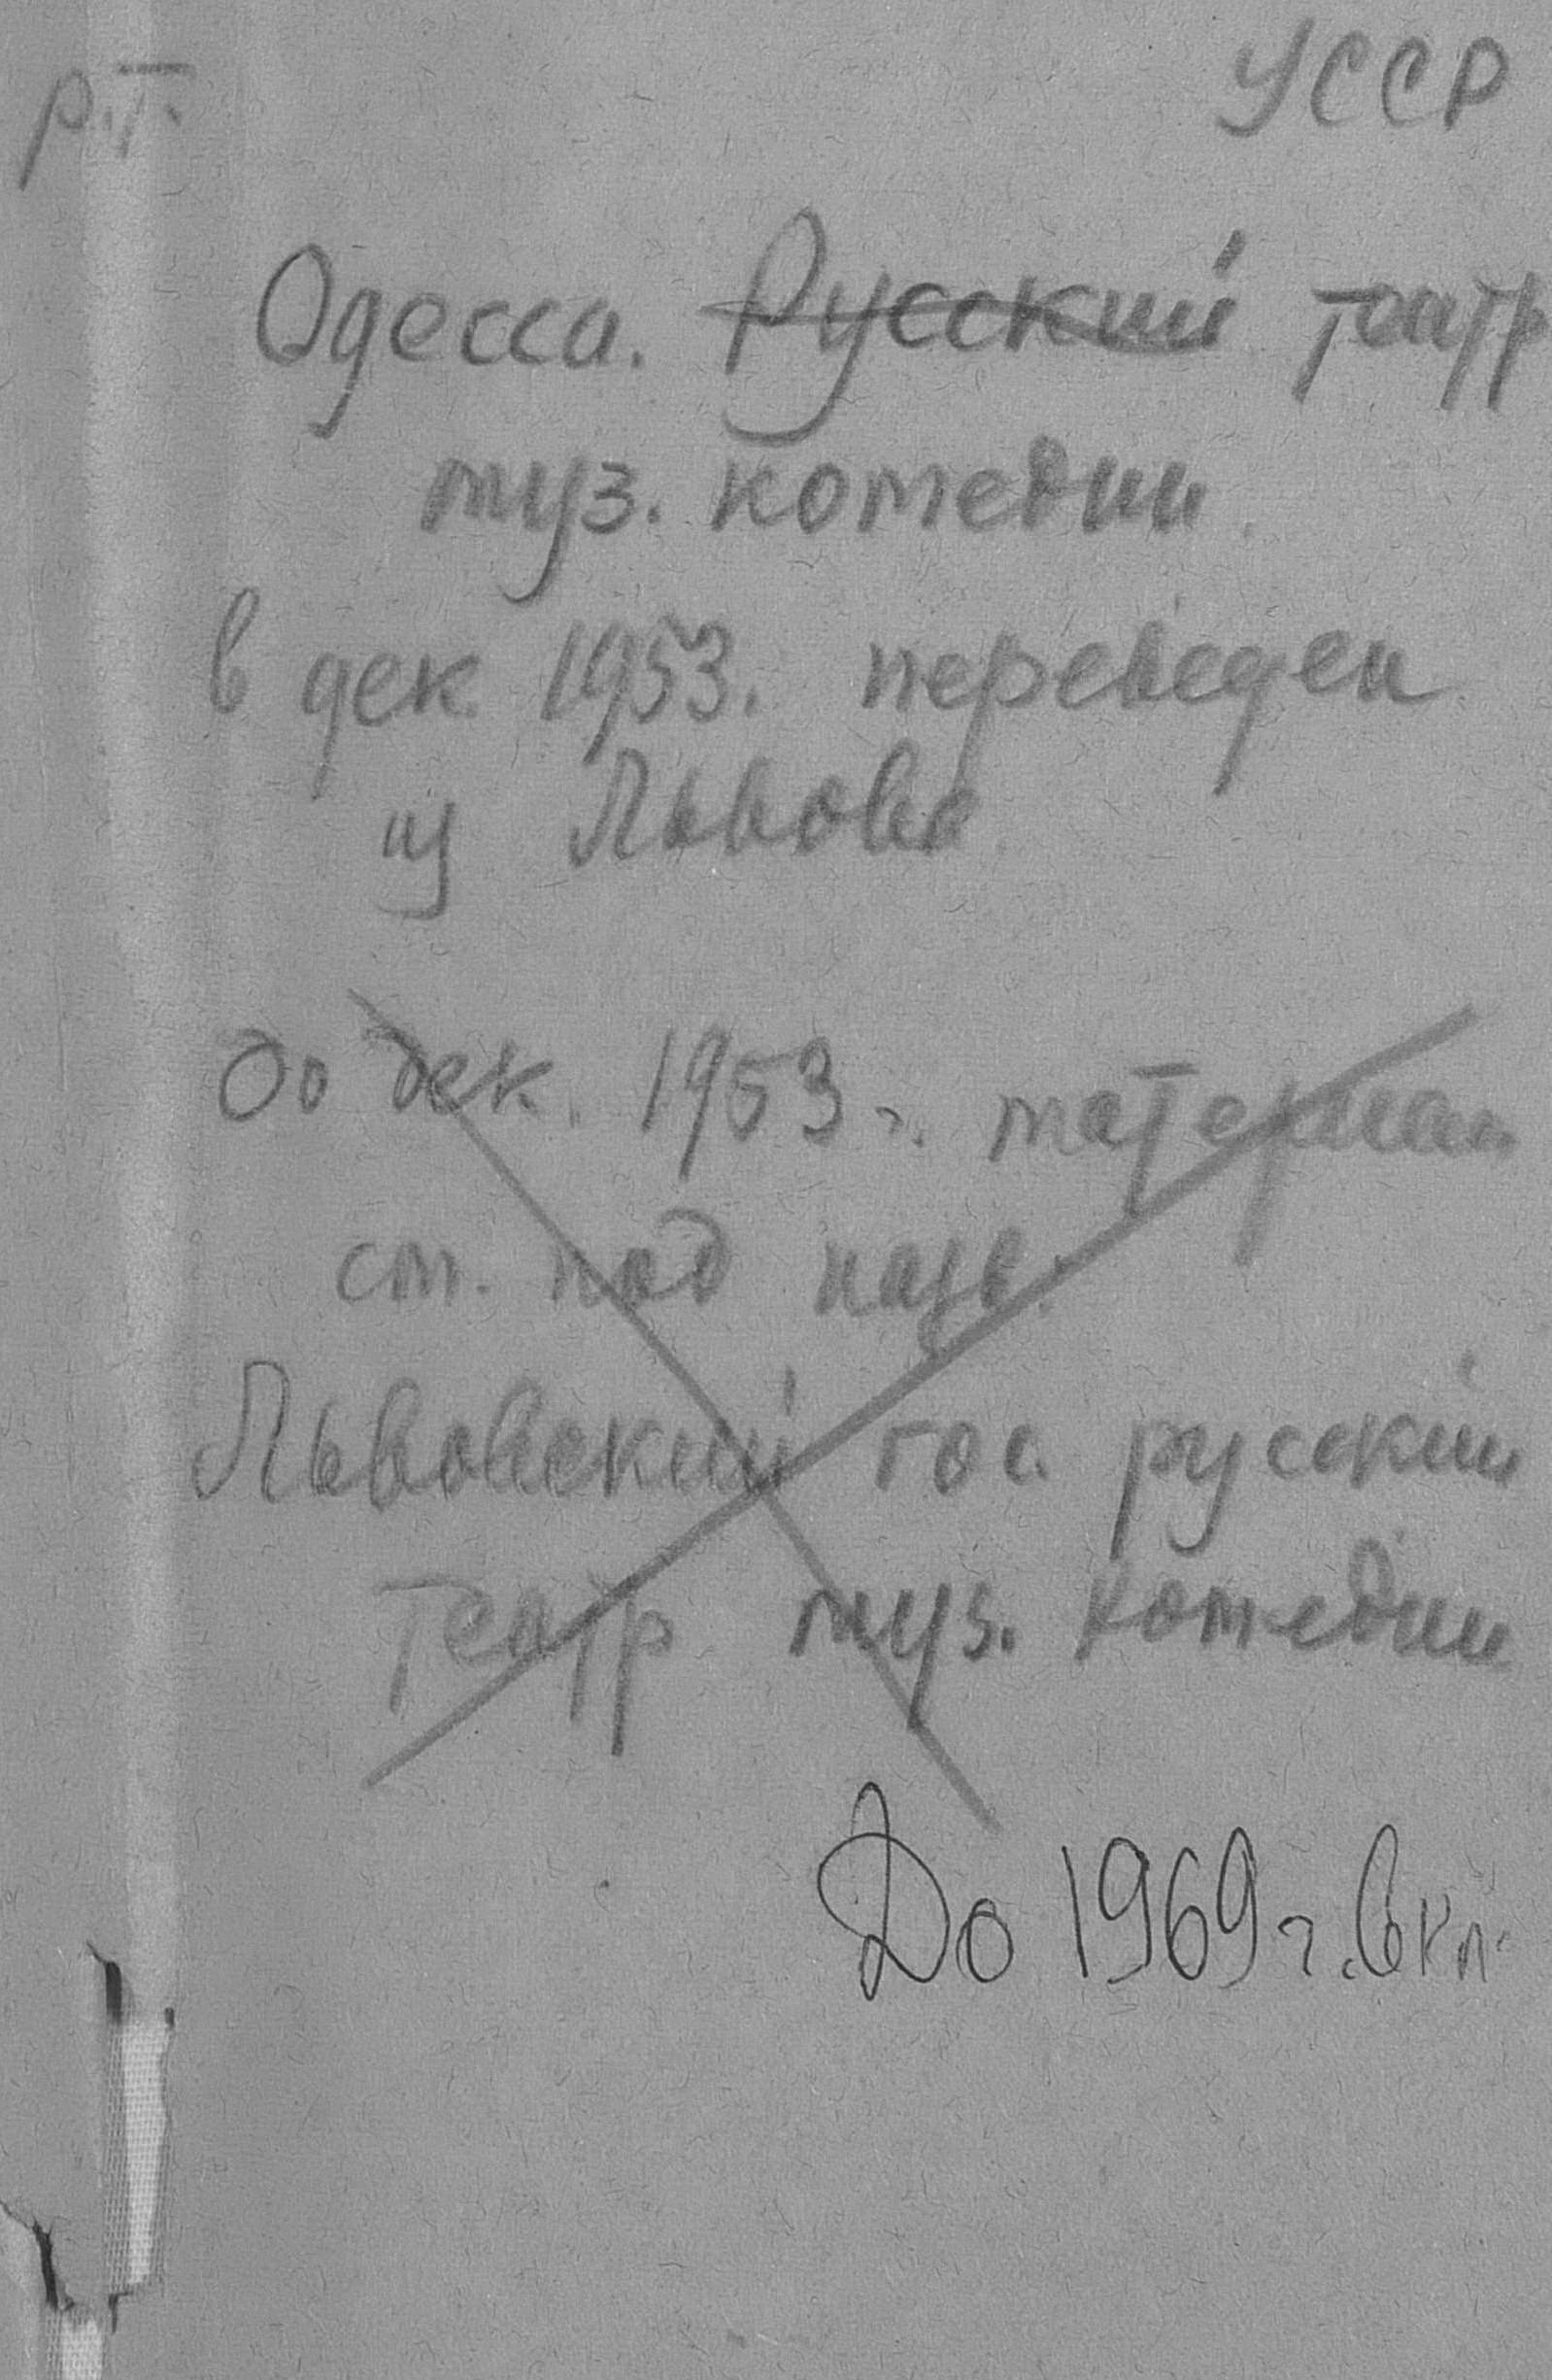 р.т.
УССР
Одесса. Русский театр
муз. комедии.
в дек. 1953. переведен
из Львова.
до дек. 1953 г. материал
см. под назв.
Львовский гос. русский
театр муз. комедии
До 1969 г. вкл.